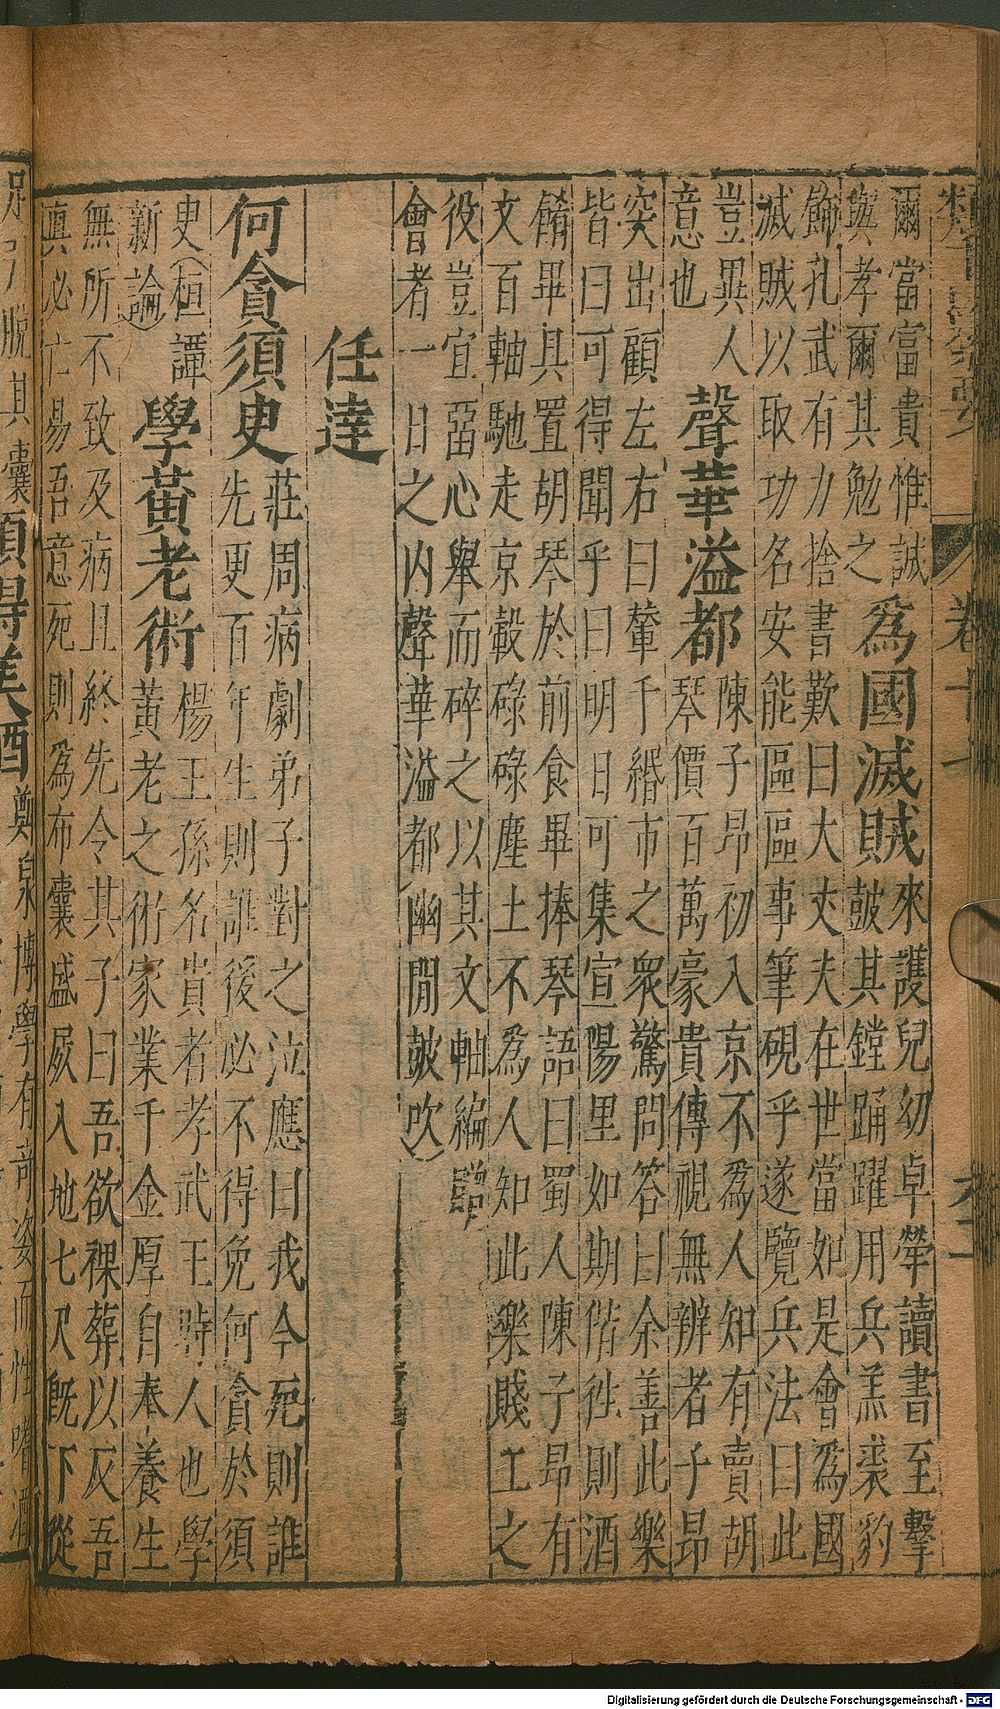 爾當富貴惟誠
與孝爾其勉之
爲國滅賊
來護兒幼卓犖讀書至擊
鼓其鏜踊躍用兵羔裘豹
飾孔武有力捨書歎曰大丈夫在世當如是會爲國
滅賊以取功名安能區區事筆硯乎遂覽兵法曰此
豈異人
意也
聲華溢都
陳子昻初入京不爲人知有賣胡
琴價百萬豪貴傳視無辨者子昻
突出顧左右曰輦千緡市之衆驚問答曰余善此樂
皆曰可得聞乎曰明日可集宣陽里如期偕徃則酒
餚畢具置胡琴於前食畢捧琴語曰蜀人陳子昻有
文百軸馳走京轂碌碌塵土不爲人知此樂賤工之
役豈宜畱心舉而碎之以其文軸編贈
會者一日之内聲華溢都幽閒皷吹
任達
何貪須史
莊周病劇弟子對之泣應曰我今死則誰
先更百年生則誰後必不得免何貪於須
史桓譚
新論
學黃老術
楊王孫名貴者孝武王時人也學
黃老之術家業千金厚自奉養生
無所不致及病且終先令其子曰吾欲祼葬以反吾
眞必亡易吾意死則爲布囊盛屍入地七尺旣下從
足引脫其囊
須得美酒
鄭泉博學有奇姿而性嗜酒
卷十
Digitalisierung gefördert durch die Deutsche Forschungsgemeinschaft - DFG